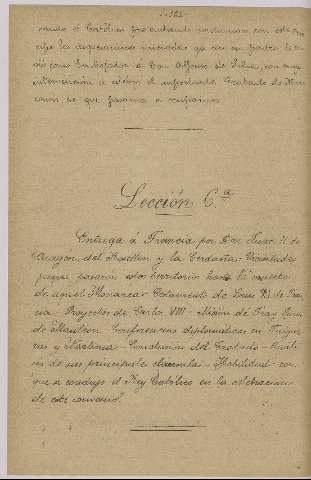 -165-
nando el Católico procurando continuar con este Prín-
cipe las negociaciones iniciadas ya con su padre le en-
vió como Embajador a Don Alfonso de Silva, con cuya
intervención se celebró el importante Tratado de Bar-
celona de que pasamos a ocuparnos
Lección 6.ª
Entrega á Francia por Don Juan II de
Aragón, del Rosellón y la Cerdaña - Vicisitudes
porque pasaron estos territorios hasta la muerte
de aquel Monarca - Testamento de Luis XI de Fran-
cia - Proyectos de Carlos VIII - Misión de Fray Juan
de Mauleon - Conferencias diplomáticas en Figue-
ras y Narbona - Conclusión del Tratado - Análi-
sis de sus principales cláusulas - Habilidad con
que se condujo el Rey Católico en la celebración
de este convenio.